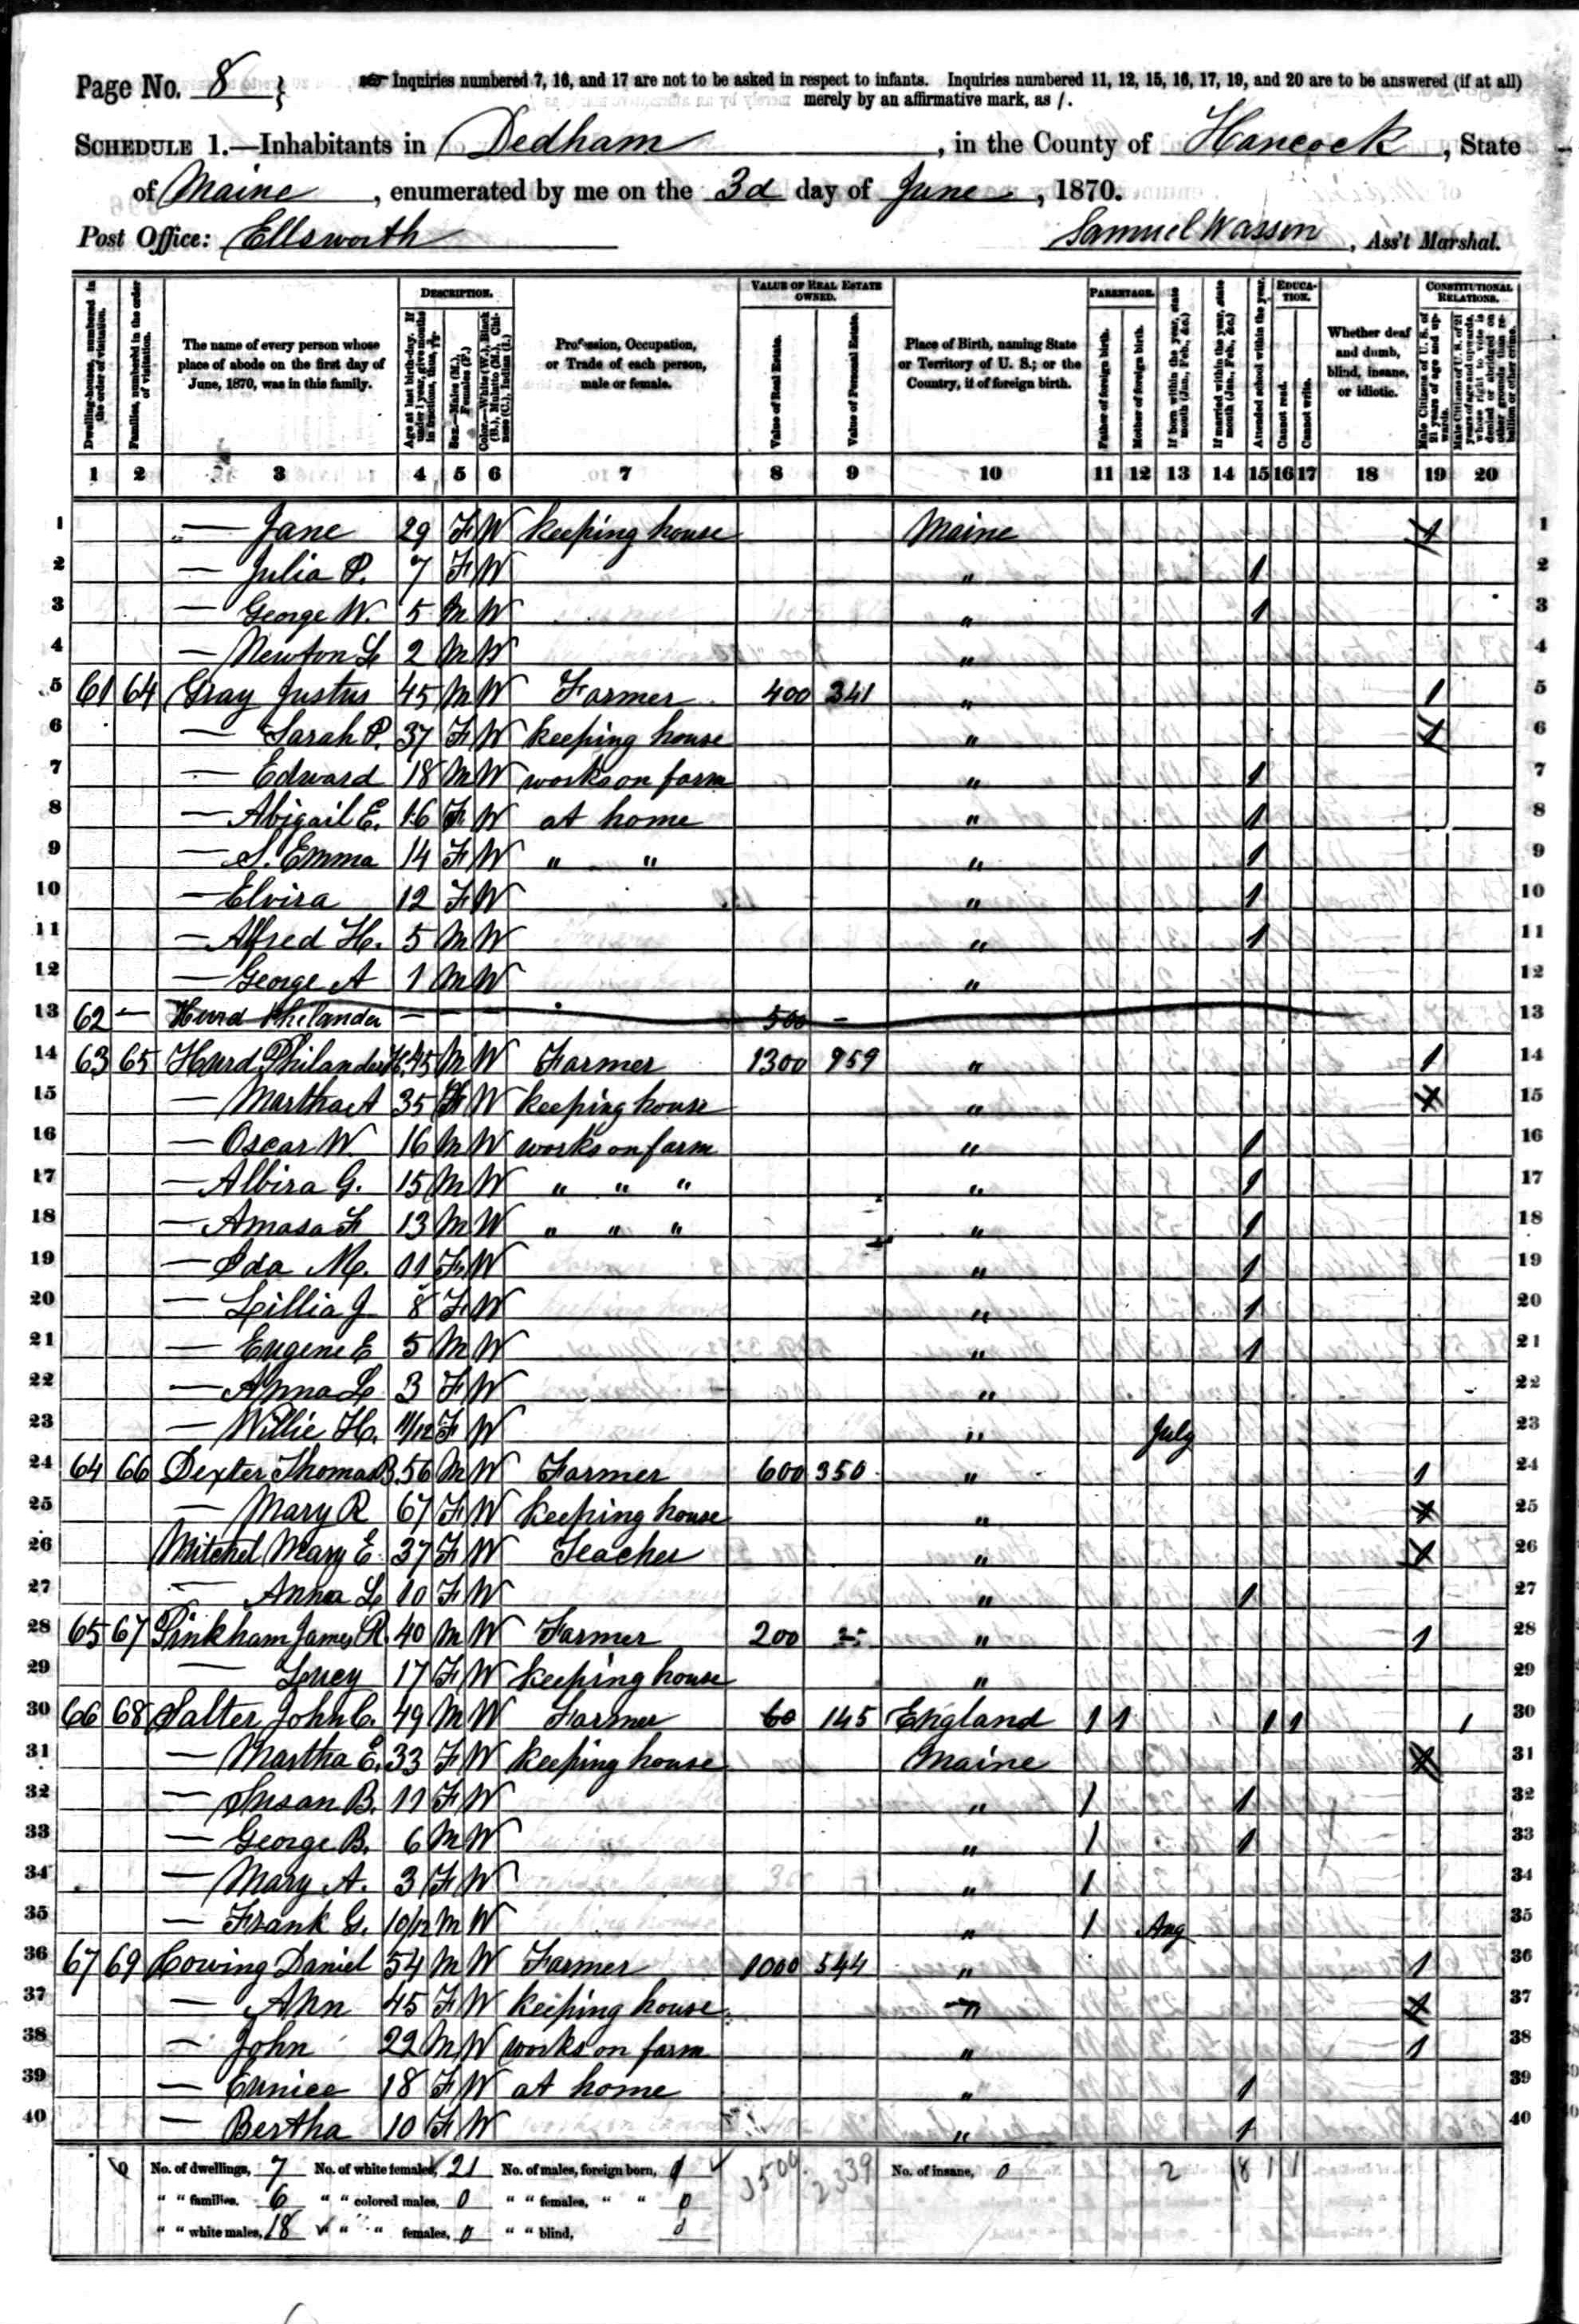 Page No. 8 } Inquiries numbered 7, 16, and 17 are not to be asked in respect to infants. Inquiries numbered 11, 12, 15, 16, 17, 19, and 20 are to be answered (if at all)
merely by an affirmative mark, as /.
SCHEDULE 1.—Inhabitants in Dedham, in the County of Hancock, State
of Maine, enumerated by me on the 3d day of June, 1870.
Post Office: Ellsworth Samuel Wasson, Ass't Marshal.
Dwelling-houses, numbered in the order of visitation.
Families, numbered in the order of visitation.
The name of every person whose place of abode on the first day of June, 1870, was in this family.
DESCRIPTION.
Age at last birth-day. If under 1 year, give months in fractions, thus,
Sex.—Males (M.), Females (F.)
Color.—White (W.), Black (B.), Mulatto (M.), Chinese (C.), Indian (I.)
Profession, Occupation, or Trade of each person, male or female.
VALUE OF REAL ESTATE OWNED.
Value of Real Estate.
Value of Personal Estate.
Place of Birth, naming State or Territory of U. S.; or the Country, if of foreign birth.
PARENTAGE.
Father of foreign birth.
Mother of foreign birth.
If born within the year, state month (Jan., Feb., &c.)
If married within the year, state month (Jan., Feb., &c.)
Attended school within the year.
EDUCATION.
Cannot read.
Cannot write.
Whether deaf and dumb, blind, insane, or idiotic.
CONSTITUTIONAL RELATIONS.
Male Citizens of U. S. of 21 years of age and upwards.
Male Citizens of U. S. of 21 years of age and upwards, whose right to vote is denied or abridged on other grounds than rebellion or other crime.
1 2 3 4 5 6 7 8 9 10 11 12 13 14 15 16 17 18 19 20
1 — Jane 29 F W keeping house Maine 1 1
2 — Julia P. 7 F W " 1 2
3 — George W. 5 M W " 1 3
4 — Newton L 2 M W " 4
5 61 64 Gray Justus 45 M W Farmer 400 341 " 1 5
6 — Sarah P. 37 F W keeping house " 1 6
7 — Edward 18 M W works on farm " 1 7
8 — Abigail E. 16 F W at home " 1 8
9 — S. Emma 14 F W " " " 1 9
10 — Elvira 12 F W " 1 10
11 — Alfred H. 5 M W " 1 11
12 — George A 1 M W " 12
13 62 — Hurd Philander — — — 500 — 13
14 63 65 Hurd Philander H. 45 M W Farmer 1300 959 " 1 14
15 — Martha A 35 F W keeping house " 1 15
16 — Oscar W. 16 M W works on farm " 1 16
17 — Albira G. 15 M W " " " " 1 17
18 — Amasa F 13 M W " " " " 1 18
19 — Ida M. 11 F W " 1 19
20 — Lillia J 8 F W " 1 20
21 — Eugene E 5 M W " 1 21
22 — Anna L. 3 F W " 22
23 — Willie H. 11/12 F W " July 23
24 64 66 Dexter Thomas B. 56 M W Farmer 600 350 " 1 24
25 — Mary R 67 F W keeping house " 1 25
26 Mitchel Mary E. 37 F W Teacher " 1 26
27 — Anna L 10 F W " 1 27
28 65 67 Pinkham James R. 40 M W Farmer 200 25 " 1 28
29 — Lucy 17 F W keeping house " 29
30 66 68 Salter John C. 49 M W Farmer 60 145 England 1 1 1 1 1 30
31 — Martha E. 33 F W keeping house Maine 1 31
32 — Susan B. 11 F W " 1 1 32
33 — George B. 6 M W " 1 1 33
34 — Mary A. 3 F W " 1 34
35 — Frank G. 10/12 M W " 1 Aug 35
36 67 69 Cowing Daniel 54 M W Farmer 1000 544 " 1 36
37 — Ann 45 F W keeping house " 1 37
38 — John 22 M W works on farm " 1 38
39 — Eunice 18 F W at home " 1 39
40 — Bertha 10 F W " 1 40
No. of dwellings, 7 No. of white females, 21 No. of males, foreign born, 1 3509 2339 No. of insane, 0 2 18 1 1
" " families. 6 " " colored males, 0 " " females, " " 0
" " white males, 18 " " " females, 0 " " blind, 0